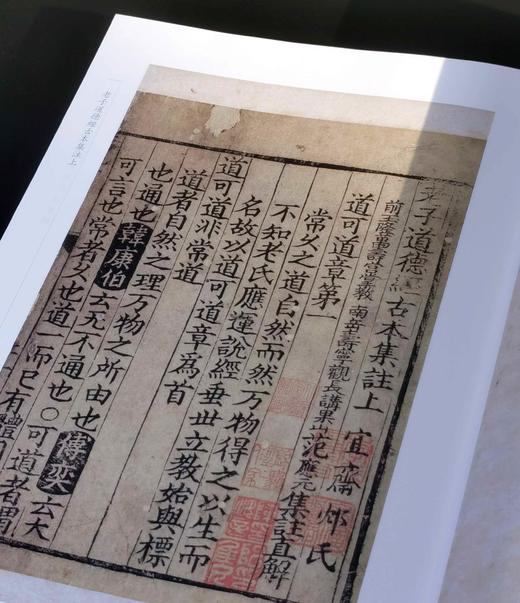 老子道德經古本集註上 宜齋
前玉隆萬壽宮掌教南嶽壽寧觀長講果山范應元集註直解
道可道章第一
常久之道自然而然万物得之以生而
不知老氏應運說經垂世立教始與標
名故以道可道章爲首
道可道非常道
道者自然之理万物之所由也傅奕云大
也通也韓康伯云无不通也○可道者謂
可言也常者久也道一而已有體
老子道德經古本集註上